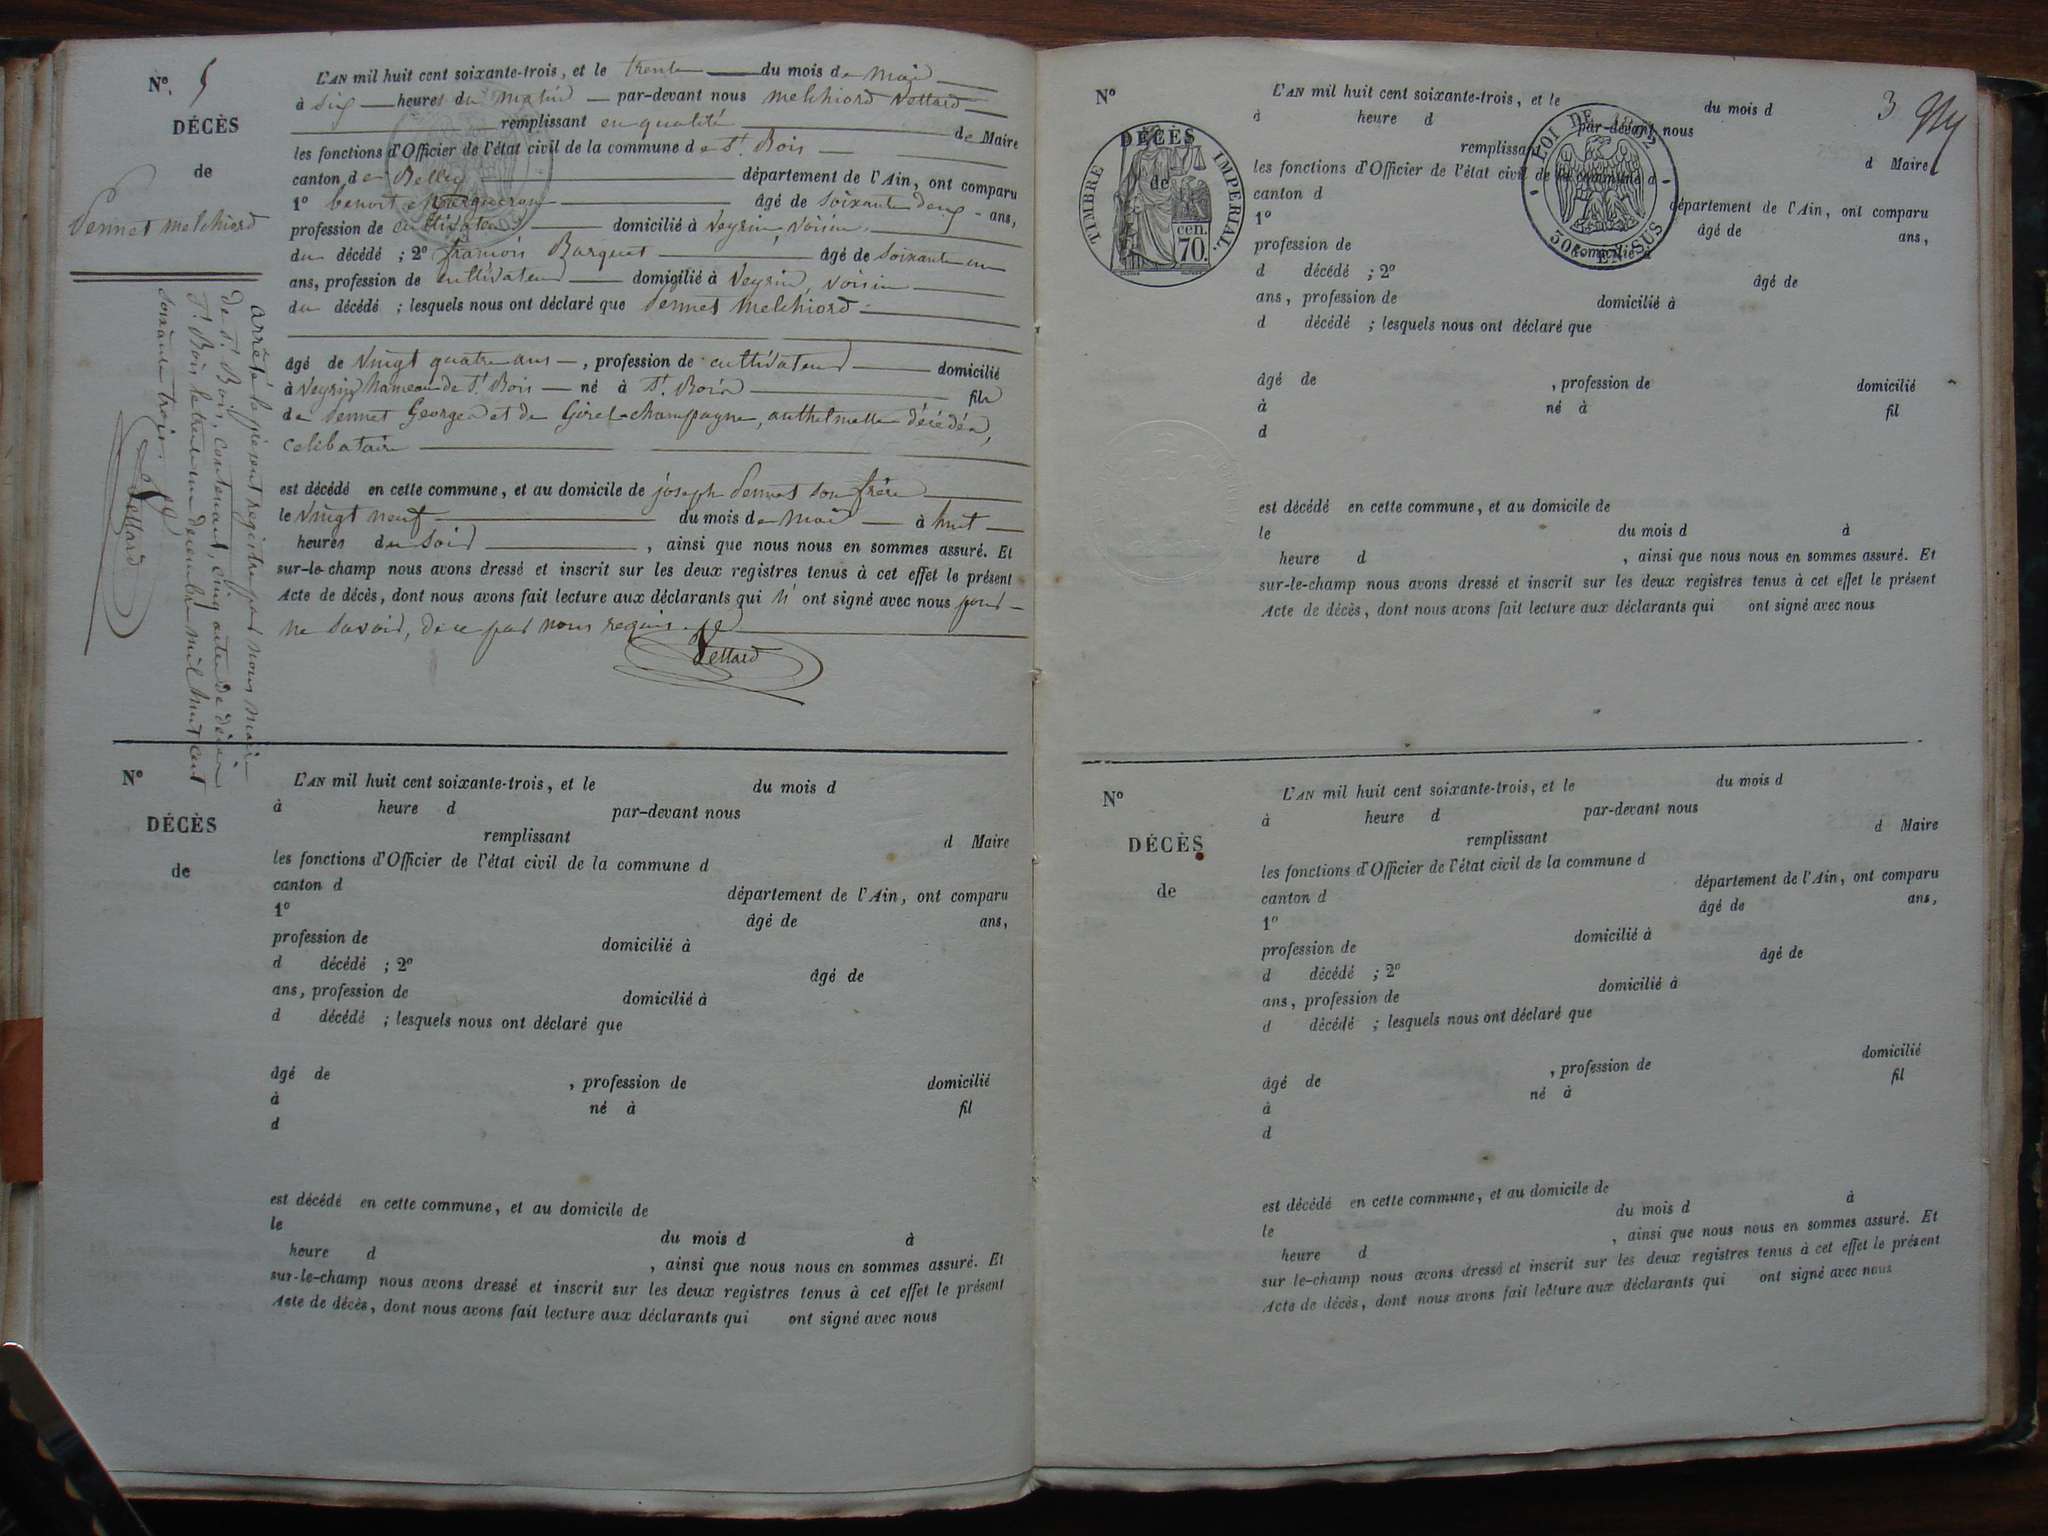 N° 5
DÉCÈS
de
Pennet melchiord
L'AN mil huit cent soixante-trois, et le trente du mois de Mai
à six heures du matin par-devant nous Melchiord Vettard
remplissant en qualité de Maire
les fonctions d'Officier de l'état civil de la commune de St. Bois
canton de Belley département de l'Ain, ont comparu
1° benoit âgé de Soixante deux ans,
profession de cultivateur domicilié à Veyrin, voisin
du décédé ; 2° françois Barquet âgé de Soixante un
ans, profession de cultivateur domicilié à Veyrin, voisin
du décédé ; lesquels nous ont déclaré que Pennet Melchiord
âgé de Vingt quatre ans, profession de cultivateur domicilié
à Veyrin hameau de St. Bois né à St. Bois fils
de Pennet George et de Girel-champagne, anthelmette décédés,
celibataire
est décédé en cette commune, et au domicile de joseph Pennet son frère
le Vingt neuf du mois de Mai à huit
heures du Soir, ainsi que nous nous en sommes assuré. Et
sur-le-champ nous avons dressé et inscrit sur les deux registres tenus à cet effet le présent
Acte de décès, dont nous avons fait lecture aux déclarants qui n' ont signé avec nous pour
ne Savoir, de ce par nous requis.
Vettard
arrêté le présent registre par nous maire
de St. Bois, contenant cinq actes de décès
St. Bois le trente un decembre mil huit cent
soixante trois
Vettard
N°
DÉCÈS
de
L'AN mil huit cent soixante-trois, et le du mois d
à heure d par-devant nous
remplissant d Maire
les fonctions d'Officier de l'état civil de la commune d
canton d département de l'Ain, ont comparu
1° âgé de ans,
profession de domicilié à
d décédé ; 2° âgé de
ans, profession de domicilié à
d décédé ; lesquels nous ont déclaré que
âgé de , profession de domicilié
à né à fil
d
est décédé en cette commune, et au domicile de
le du mois d à
heure d , ainsi que nous nous en sommes assuré. Et
sur-le-champ nous avons dressé et inscrit sur les deux registres tenus à cet effet le présent
Acte de décès, dont nous avons fait lecture aux déclarants qui ont signé avec nous
3
N°
DÉCÈS
de
TIMBRE IMPERIAL.
cen.
70.
LOI DE 1862
30 EN SUS
L'AN mil huit cent soixante-trois, et le du mois d
à heure d par-devant nous
remplissant d Maire
les fonctions d'Officier de l'état civil de la commune d
canton d département de l'Ain, ont comparu
1° âgé de ans,
profession de domicilié à
d décédé ; 2° âgé de
ans, profession de domicilié à
d décédé ; lesquels nous ont déclaré que
âgé de , profession de domicilié
à né à fil
d
est décédé en cette commune, et au domicile de
le du mois d à
heure d , ainsi que nous nous en sommes assuré. Et
sur-le-champ nous avons dressé et inscrit sur les deux registres tenus à cet effet le présent
Acte de décès, dont nous avons fait lecture aux déclarants qui ont signé avec nous
N°
DÉCÈS
de
L'AN mil huit cent soixante-trois, et le du mois d
à heure d par-devant nous
remplissant d Maire
les fonctions d'Officier de l'état civil de la commune d
canton d département de l'Ain, ont comparu
1° âgé de ans,
profession de domicilié à
d décédé ; 2° âgé de
ans, profession de domicilié à
d décédé ; lesquels nous ont déclaré que
âgé de , profession de domicilié
à né à fil
d
est décédé en cette commune, et au domicile de
le du mois d à
heure d , ainsi que nous nous en sommes assuré. Et
sur le-champ nous avons dressé et inscrit sur les deux registres tenus à cet effet le présent
Acte de décès, dont nous avons fait lecture aux déclarants qui ont signé avec nous